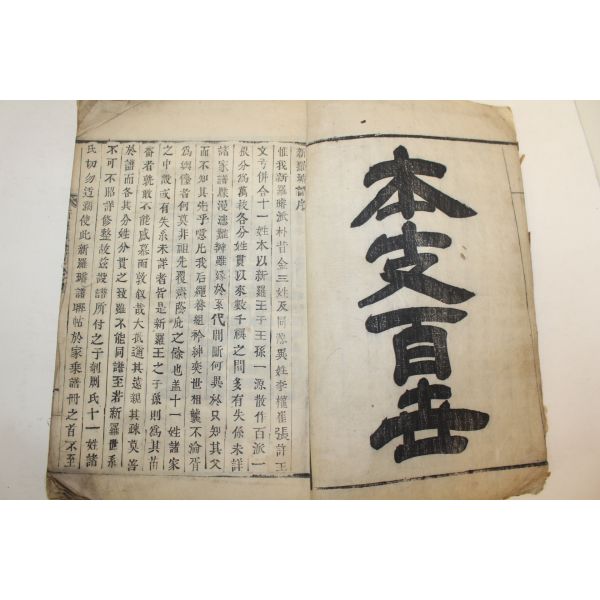 本支百世
新羅璿譜序
惟我新羅璿派朴昔金三姓及同源異姓李權崔張許王
文芳併合十一姓本以新羅王子王孫一源散作百派一
根分為萬枝各分姓貫以來數千禩之間多有失係未詳
諸家譜牒漫漶難辨雖於系代間斷何異於只知其父
而不知其先乎噫凡我后紳奕世相襲不淪胥
為輿儓者何莫非祖先覆燾蔭庇之餘也盖十一姓諸家
之中設或有失系未詳者皆是新羅王之子孫則為其苗
裔者孰敢不能感慕而敦叙哉大抵遡其遠親其疎莫善
於譜而各其分姓分貫之致雖不能同譜至若新羅世系
不可不昭詳修整故玆設譜所付之于剞劂氏十一姓諸
氏切勿泛看使此新羅璿譜聯帖於家乘譜冊之首不至